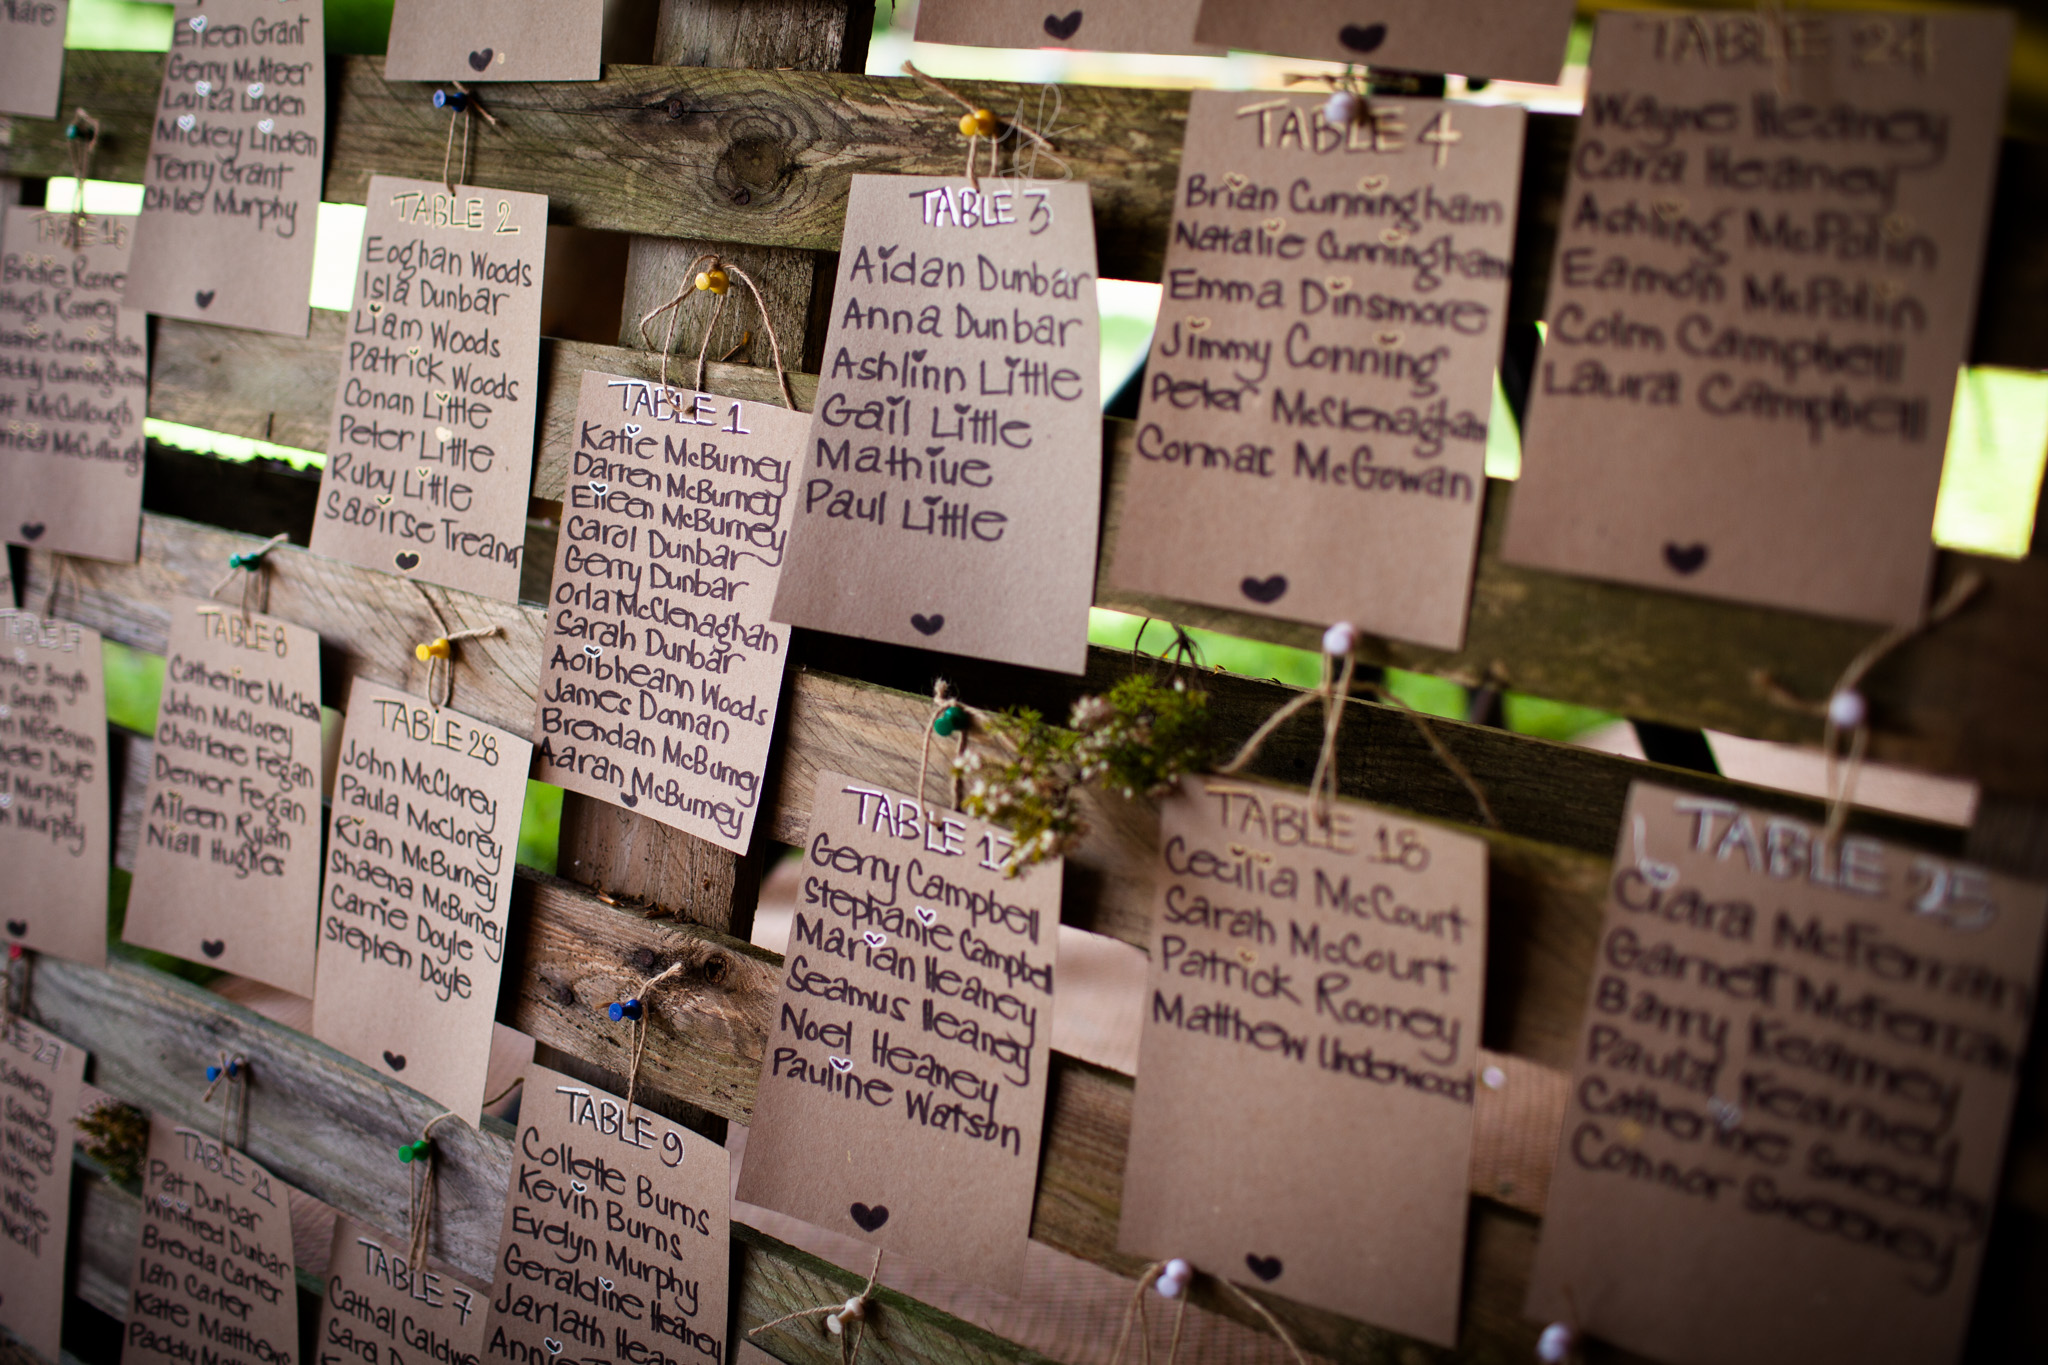 Eileen Grant
Gerry McAteer
Louisa Linden
Mickey Linden
Terry Grant
Chloe Murphy
TABLE 16
Bridie Rooney
Hugh Rooney
Cunningham
Paddy Cunningham
McCullough
McCullough
TABLE 2
Eoghan Woods
Isla Dunbar
Liam Woods
Patrick Woods
Conan Little
Peter Little
Ruby Little
Saoirse Treanor
TABLE 1
Katie McBurney
Darren McBurney
Eileen McBurney
Carol Dunbar
Gerry Dunbar
Orla McClenaghan
Sarah Dunbar
Aoibheann Woods
James Donnan
Brendan McBurney
Aaran McBurney
TABLE 3
Aidan Dunbar
Anna Dunbar
Ashlinn Little
Gail Little
Mathiue
Paul Little
TABLE 4
Brian Cunningham
Natalie Cunningham
Emma Dinsmore
Jimmy Conning
Peter McClenaghan
Cormac McGowan
TABLE 24
Wayne Heaney
Cara Heaney
Ashling McPolin
Eamon McPolin
Colm Campbell
Laura Campbell
Smyth
Smyth
Doyle
Murphy
Murphy
TABLE 8
Catherine
John McClorey
Charlene Fegan
Denver Fegan
Aileen Ryan
Niall Hughes
TABLE 28
John McClorey
Paula McClorey
Rian McBurney
Shaena McBurney
Carrie Doyle
Stephen Doyle
TABLE 17
Gerry Campbell
Stephanie Campbell
Marian Heaney
Seamus Heaney
Noel Heaney
Pauline Watson
TABLE 18
Cecilia McCourt
Sarah McCourt
Patrick Rooney
Matthew Underwood
TABLE 25
Ciara McFerran
Garnet McFerran
Barry Kearney
Paula Kearney
Catherine Sweeney
Connor Sweeney
TABLE 21
Pat Dunbar
Winifred Dunbar
Brenda Carter
Ian Carter
Kate Matthews
Paddy
TABLE 7
Cathal
Sara
TABLE 9
Collette Burns
Kevin Burns
Evelyn Murphy
Geraldine Heaney
Jarlath Heaney
Annie